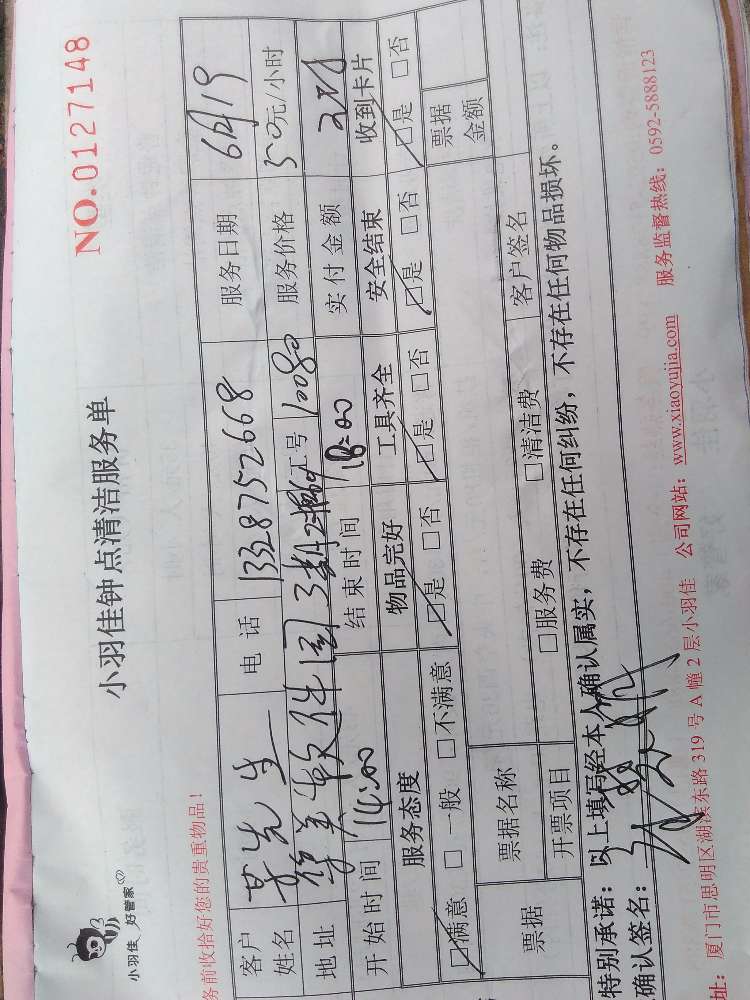 小羽佳 好管家
小羽佳钟点清洁服务单
NO.0127148
务前收拾好您的贵重物品！
客户姓名 先生 电话 13328752668 服务日期
地址 软件园 工号 10080 服务价格 50元/小时
开始时间 14:00 结束时间 18:00 实付金额
服务态度 物品完好 工具齐全 安全结束 收到卡片
☑满意 □一般 □不满意 ☑是 □否 ☑是 □否 ☑是 □否 ☑是 □否
票据 票据名称 票据金额
开票项目 □服务费 □清洁费 客户签名
特别承诺：以上填局经本人确认属实，不存在任何纠纷，不存在任何物品损坏。
确认签名：
址：厦门市思明区湖滨东路 319 号 A 幢 2 层小羽佳 公司网站：www.xiaoyujia.com 服务监督热线：0592-5888123